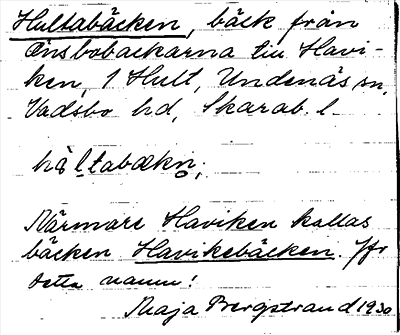 Hultabäcken, bäck från
Önsbobackarna till Havi-
ken, 1 Hult, Undenäs sn,
Vadsbo hd, Skarab. l.
hòl̠tabækn̥;
Närmare Haviken kallas
bäcken Havikebäcken. Jfr
detta namn!
Maja Bergstrand 1930